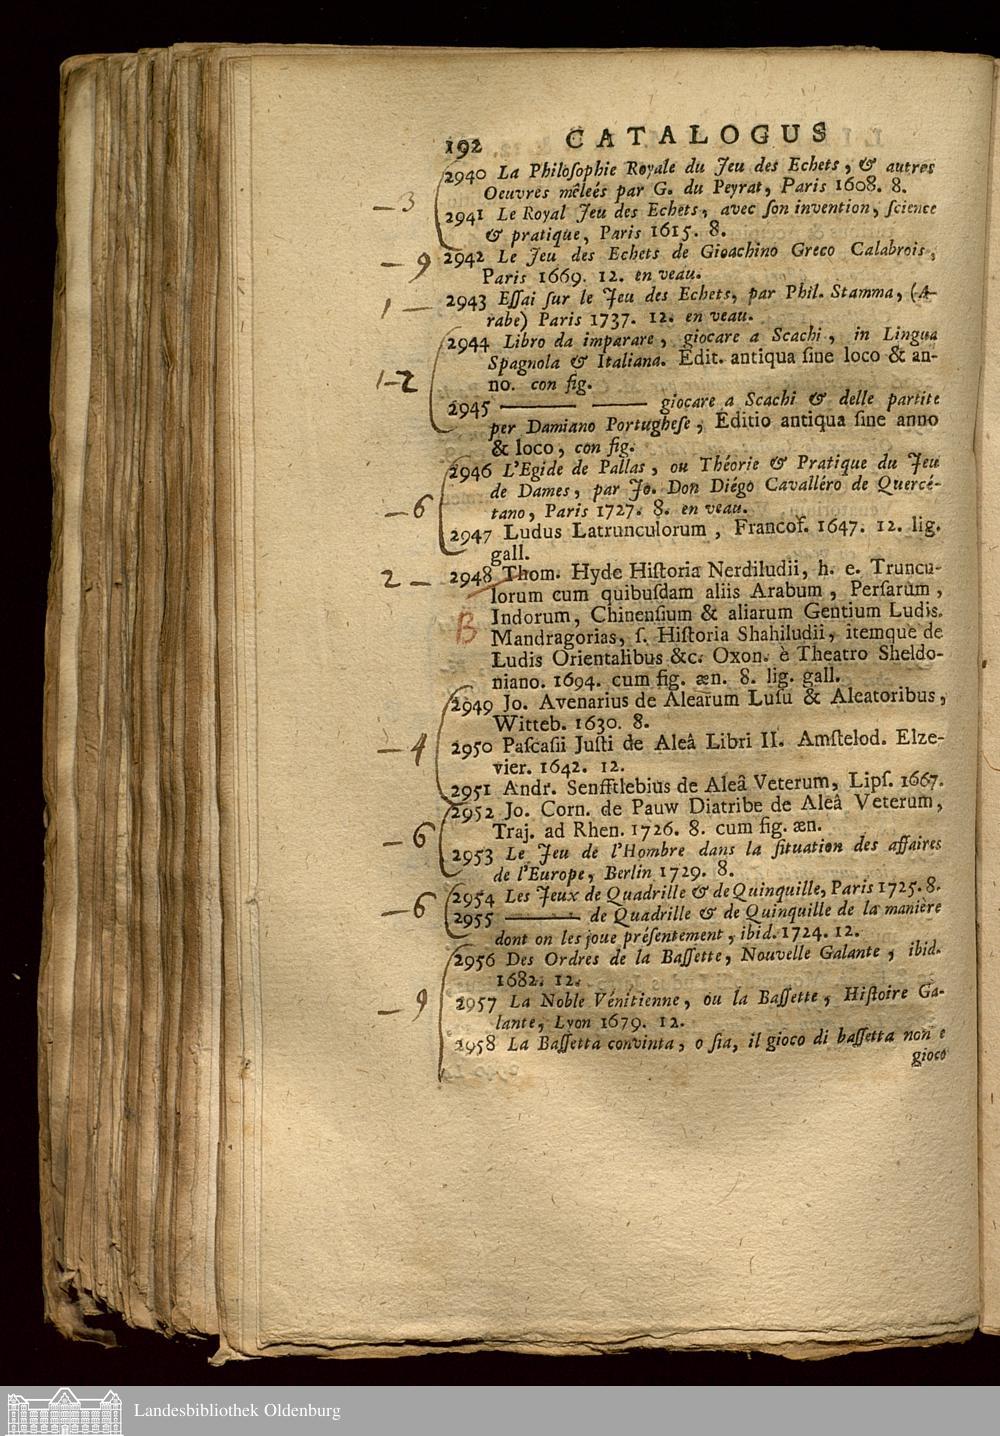 192 CATALOGUS
2940 La Philoſophie Royale du Jeu des Echets, & autres
Oeuvres mêleés par G. du Peyrat, Paris 1608. 8.
– 3
2941 Le Royal Jeu des Echets, avec ſon invention, ſcience
& pratique, Paris 1615. 8.
– 9 2942 Le Jeu des Echets de Gioachino Greco Calabrois,
Paris 1669. 12. en veau.
1 – 2943 Eſſai ſur le Jeu des Echets, par Phil. Stamma, (A-
rabe) Paris 1737. 12. en veau.
2944 Libro da imparare, giocare a Scachi, in Lingua
Spagnola & Italiana. Edit. antiqua ſine loco & an-
1–2 no. con fig.
2945 —— —— giocare a Scachi & delle partite
per Damiano Portugheſe, Editio antiqua ſine anno
& loco, con fig.
2946 L'Egide de Pallas, ou Théorie & Pratique du Jeu
de Dames, par Jo. Don Diégo Cavalléro de Quercé-
– 6 tano, Paris 1727. 8. en veau.
2947 Ludus Latrunculorum, Francof. 1647. 12. lig.
gall.
2 – 2948 Thom. Hyde Hiſtoria Nerdiludii, h. e. Truncu-
lorum cum quibuſdam aliis Arabum, Perſarum,
Indorum, Chinenſium & aliarum Gentium Ludis.
B Mandragorias, ſ. Hiſtoria Shahiludii, itemque de
Ludis Orientalibus &c. Oxon. è Theatro Sheldo-
niano. 1694. cum fig. æn. 8. lig. gall.
2949 Jo. Avenarius de Alearum Luſu & Aleatoribus,
Witteb. 1630. 8.
– 4 2950 Paſcaſii Juſti de Aleâ Libri II. Amſtelod. Elze-
vier. 1642. 12.
2951 Andr. Senfftlebius de Aleâ Veterum, Lipſ. 1667.
2952 Jo. Corn. de Pauw Diatribe de Aleâ Veterum,
– 6 Traj. ad Rhen. 1726. 8. cum fig. æn.
2953 Le Jeu de l'Hombre dans la ſituation des affaires
de l'Europe, Berlin 1729. 8.
2954 Les Jeux de Quadrille & de Quinquille, Paris 1725. 8.
– 6 2955 —— de Quadrille & de Quinquille de la manière
dont on les joue préſentement, ibid. 1724. 12.
2956 Des Ordres de la Baſſette, Nouvelle Galante, ibid.
1682. 12.
– 9 2957 La Noble Vénitienne, ou la Baſſette, Hiſtoire Ga-
lante, Lyon 1679. 12.
2958 La Baſſetta convinta, o ſia, il gioco di baſſetta non e
gioco
Landesbibliothek Oldenburg